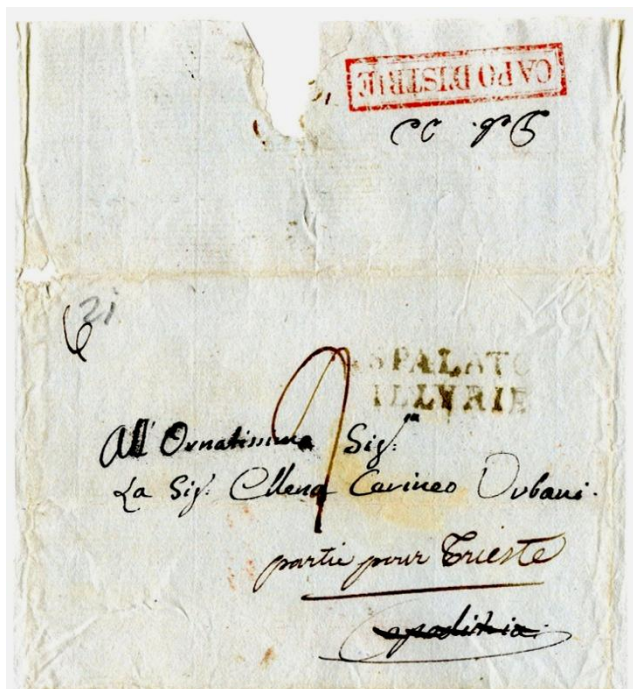 CAPO D'ISTRIE
21
SPALATO
ILLYRIE
All' Ornatissima Sig.ra
La Sig.ra Ellena Carineo Orbani.
partie pour Trieste
Capodistria